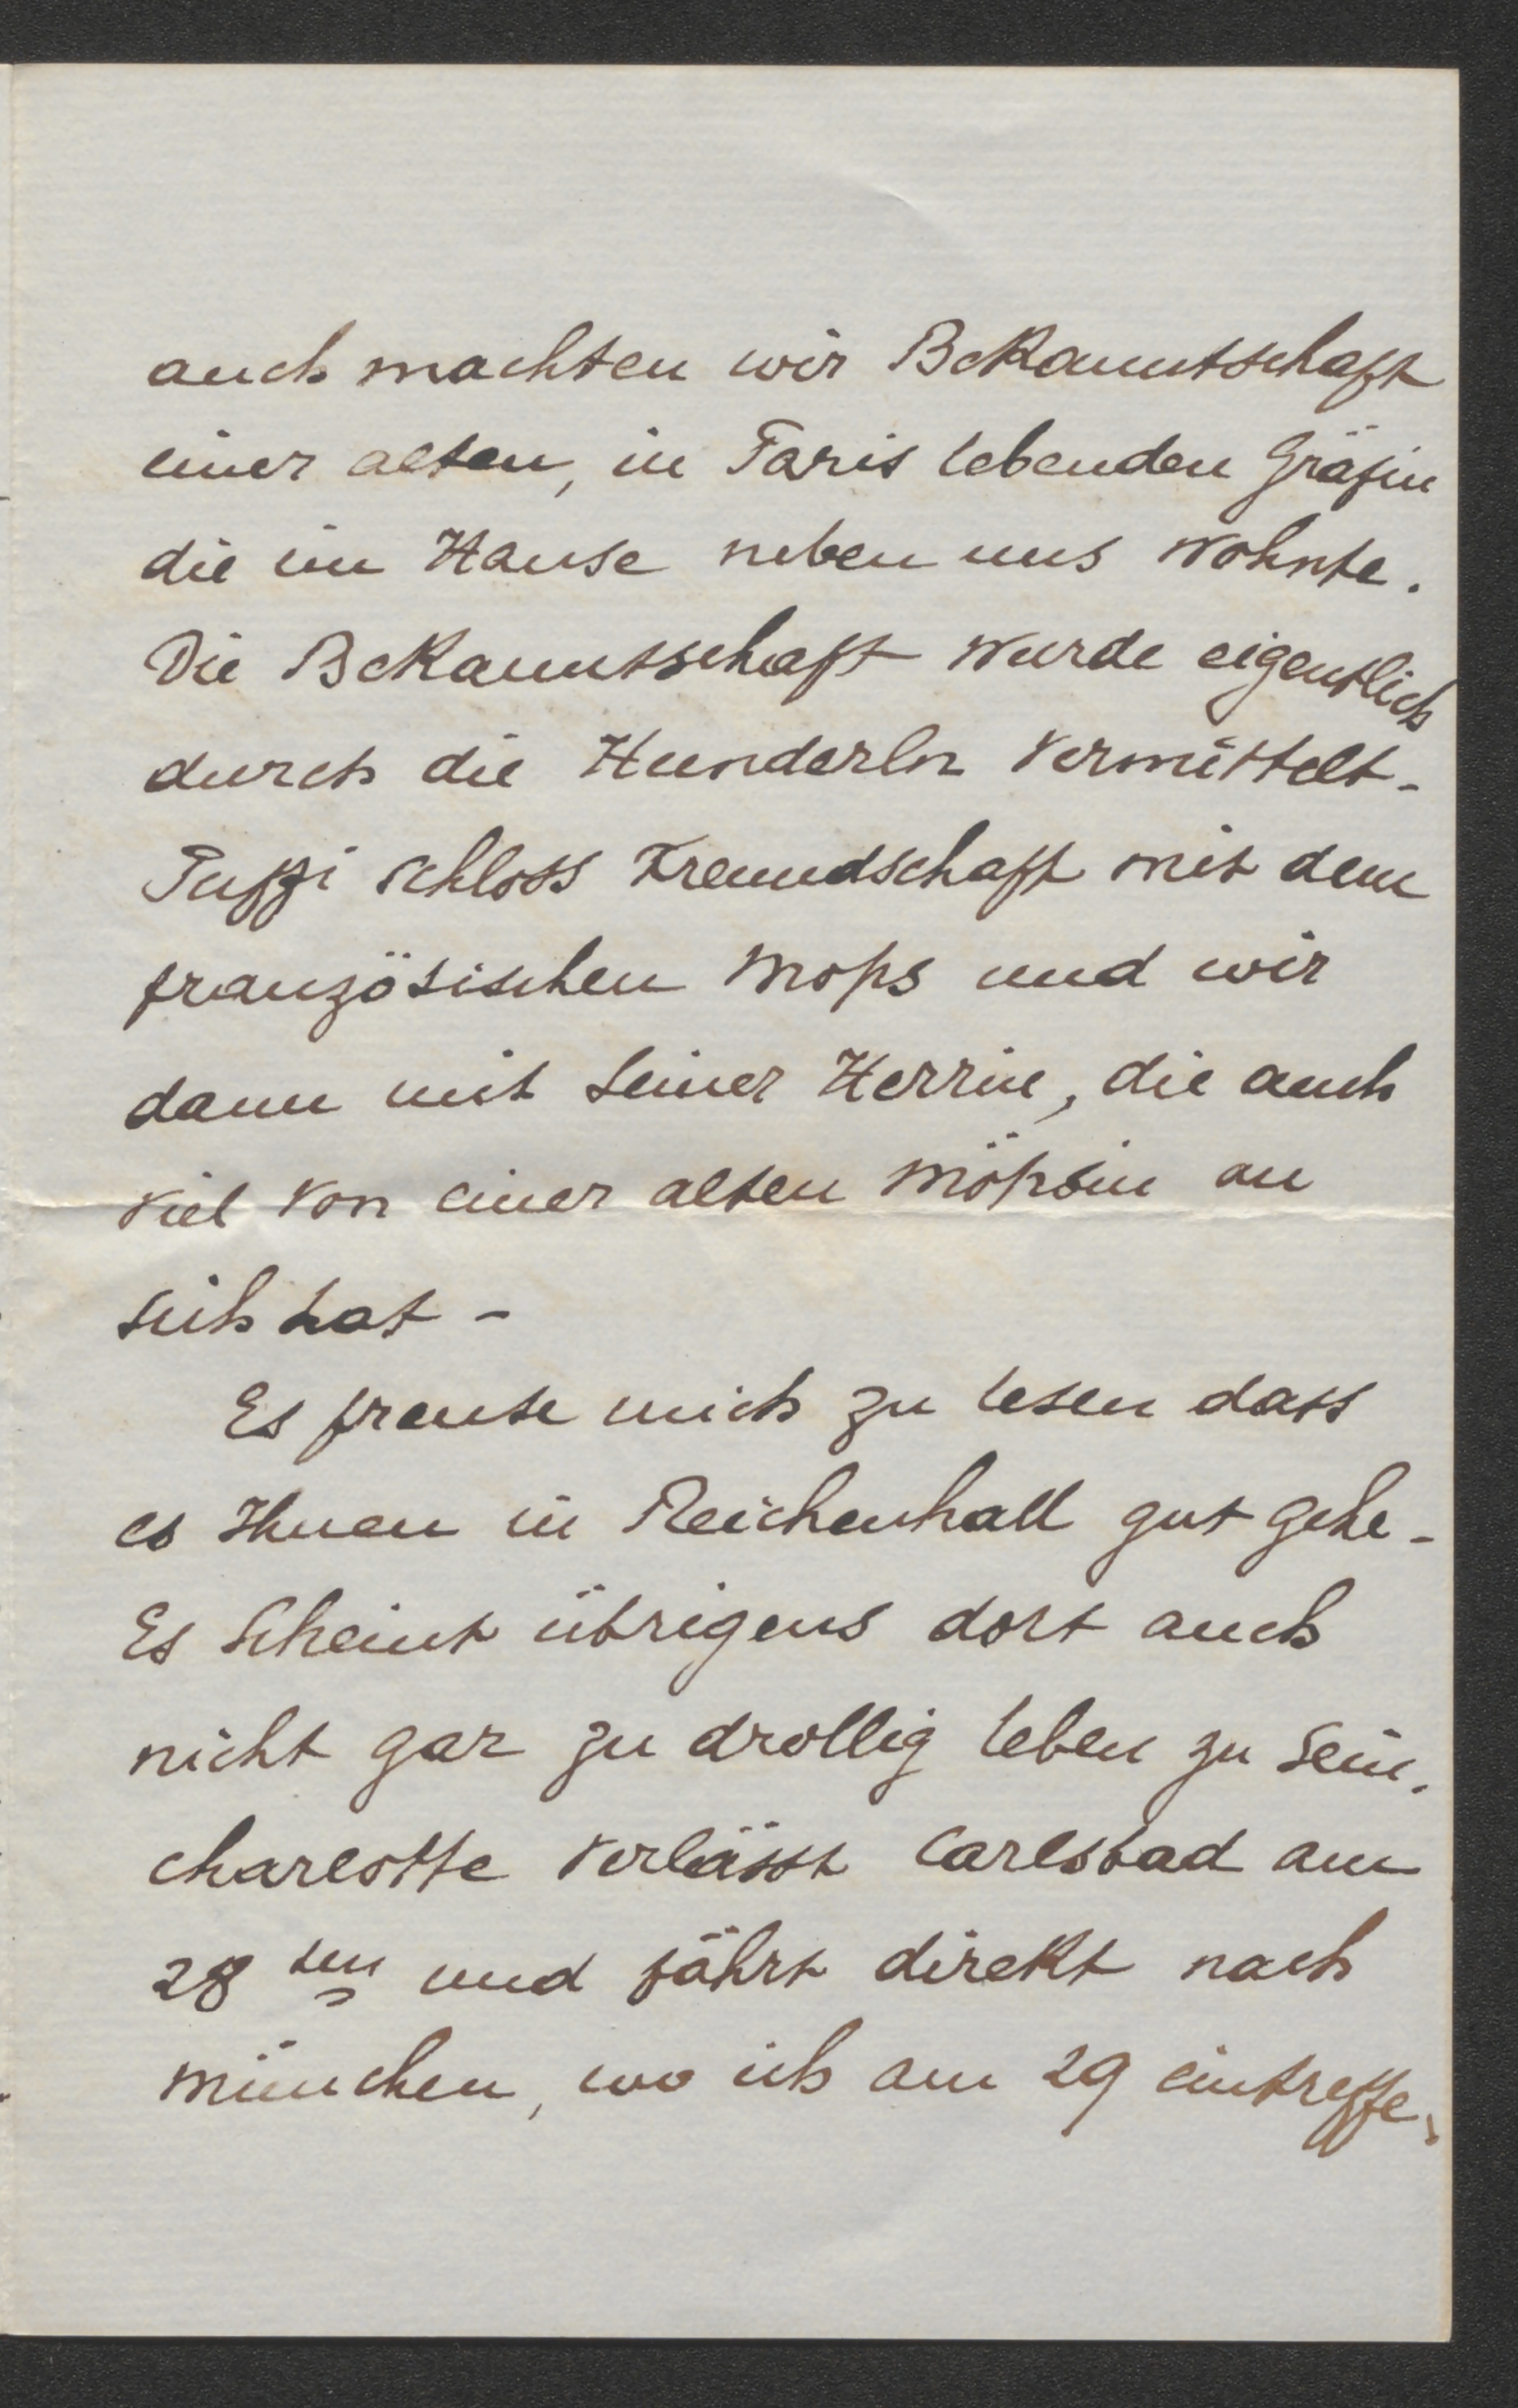 auch machten wir Bekanntschaft
einer alten, in Paris lebenden Gräfin
die im Hause neben uns wohnte.
Die Bekanntschaft wurde eigentlich
durch die Hunderln vermittelt -
Puffi schloss Freundschaft mit dem
französischen Mops und wir
dann mit seiner Herrin, die auch
viel von einer alten Möpsin an
sich hat -
Es freute mich zu lesen dass
es Ihnen in Reichenhall gut gehe -
Es scheint übrigens dort auch
nicht gar zu drollig leben zu sein.
Charlotte verlässt Carlsbad am
28ten und fährt direkt nach
München, wo ich am 29 eintreffe.